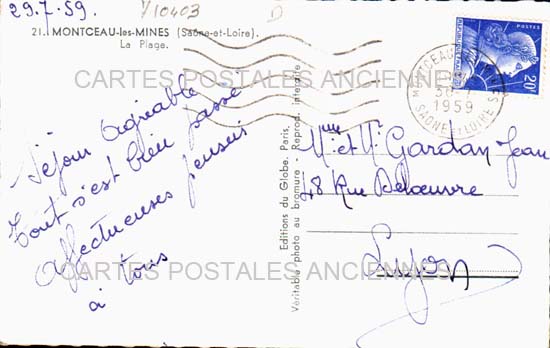 29.7.59.
Y10403
D
21. MONTCEAU-les-MINES (Saône-et-Loire).
La Plage.
CARTES POSTALES ANCIENNES
Séjour agréable
Tout s'est bien passé
Affectueuses pensées
à tous
Editions du Globe, Paris.
Véritable photo au bromure - Reprod. interdite
MONTCEAU
1959
SAONE ET LOIRE
POSTES
20F
Mme et Mr Gardan Jean
48 Rue
CARTES POSTALES ANCIENNES